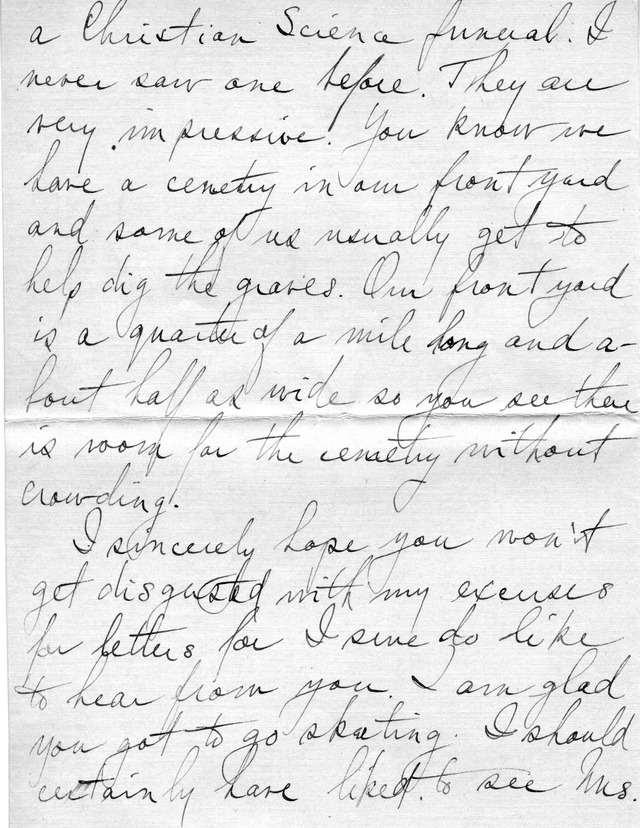 a Christian Science funeral. I
never saw one before. They are
very impressive. You know we
have a cemetry in our front yard
and some of us usually get to
help dig the graves. Our front yard
is a quarter of a mile long and a-
bout half as wide so you see there
is room for the cemetry without
crowding.
I sincerely hope you won't
get disgusted with my excuses
for letters for I sure do like
to hear from you. I am glad
you got to go skating. I should
certainly have liked to see Mrs.